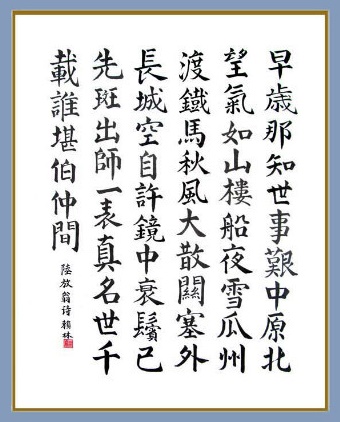 早歳那知世事艱中原北
望氣如山樓船夜雪瓜州
渡鐵馬秋風大散關塞外
長城空自許鏡中衰鬢已
先斑出師一表真名世千
載誰堪伯仲間
陸放翁诗 賴